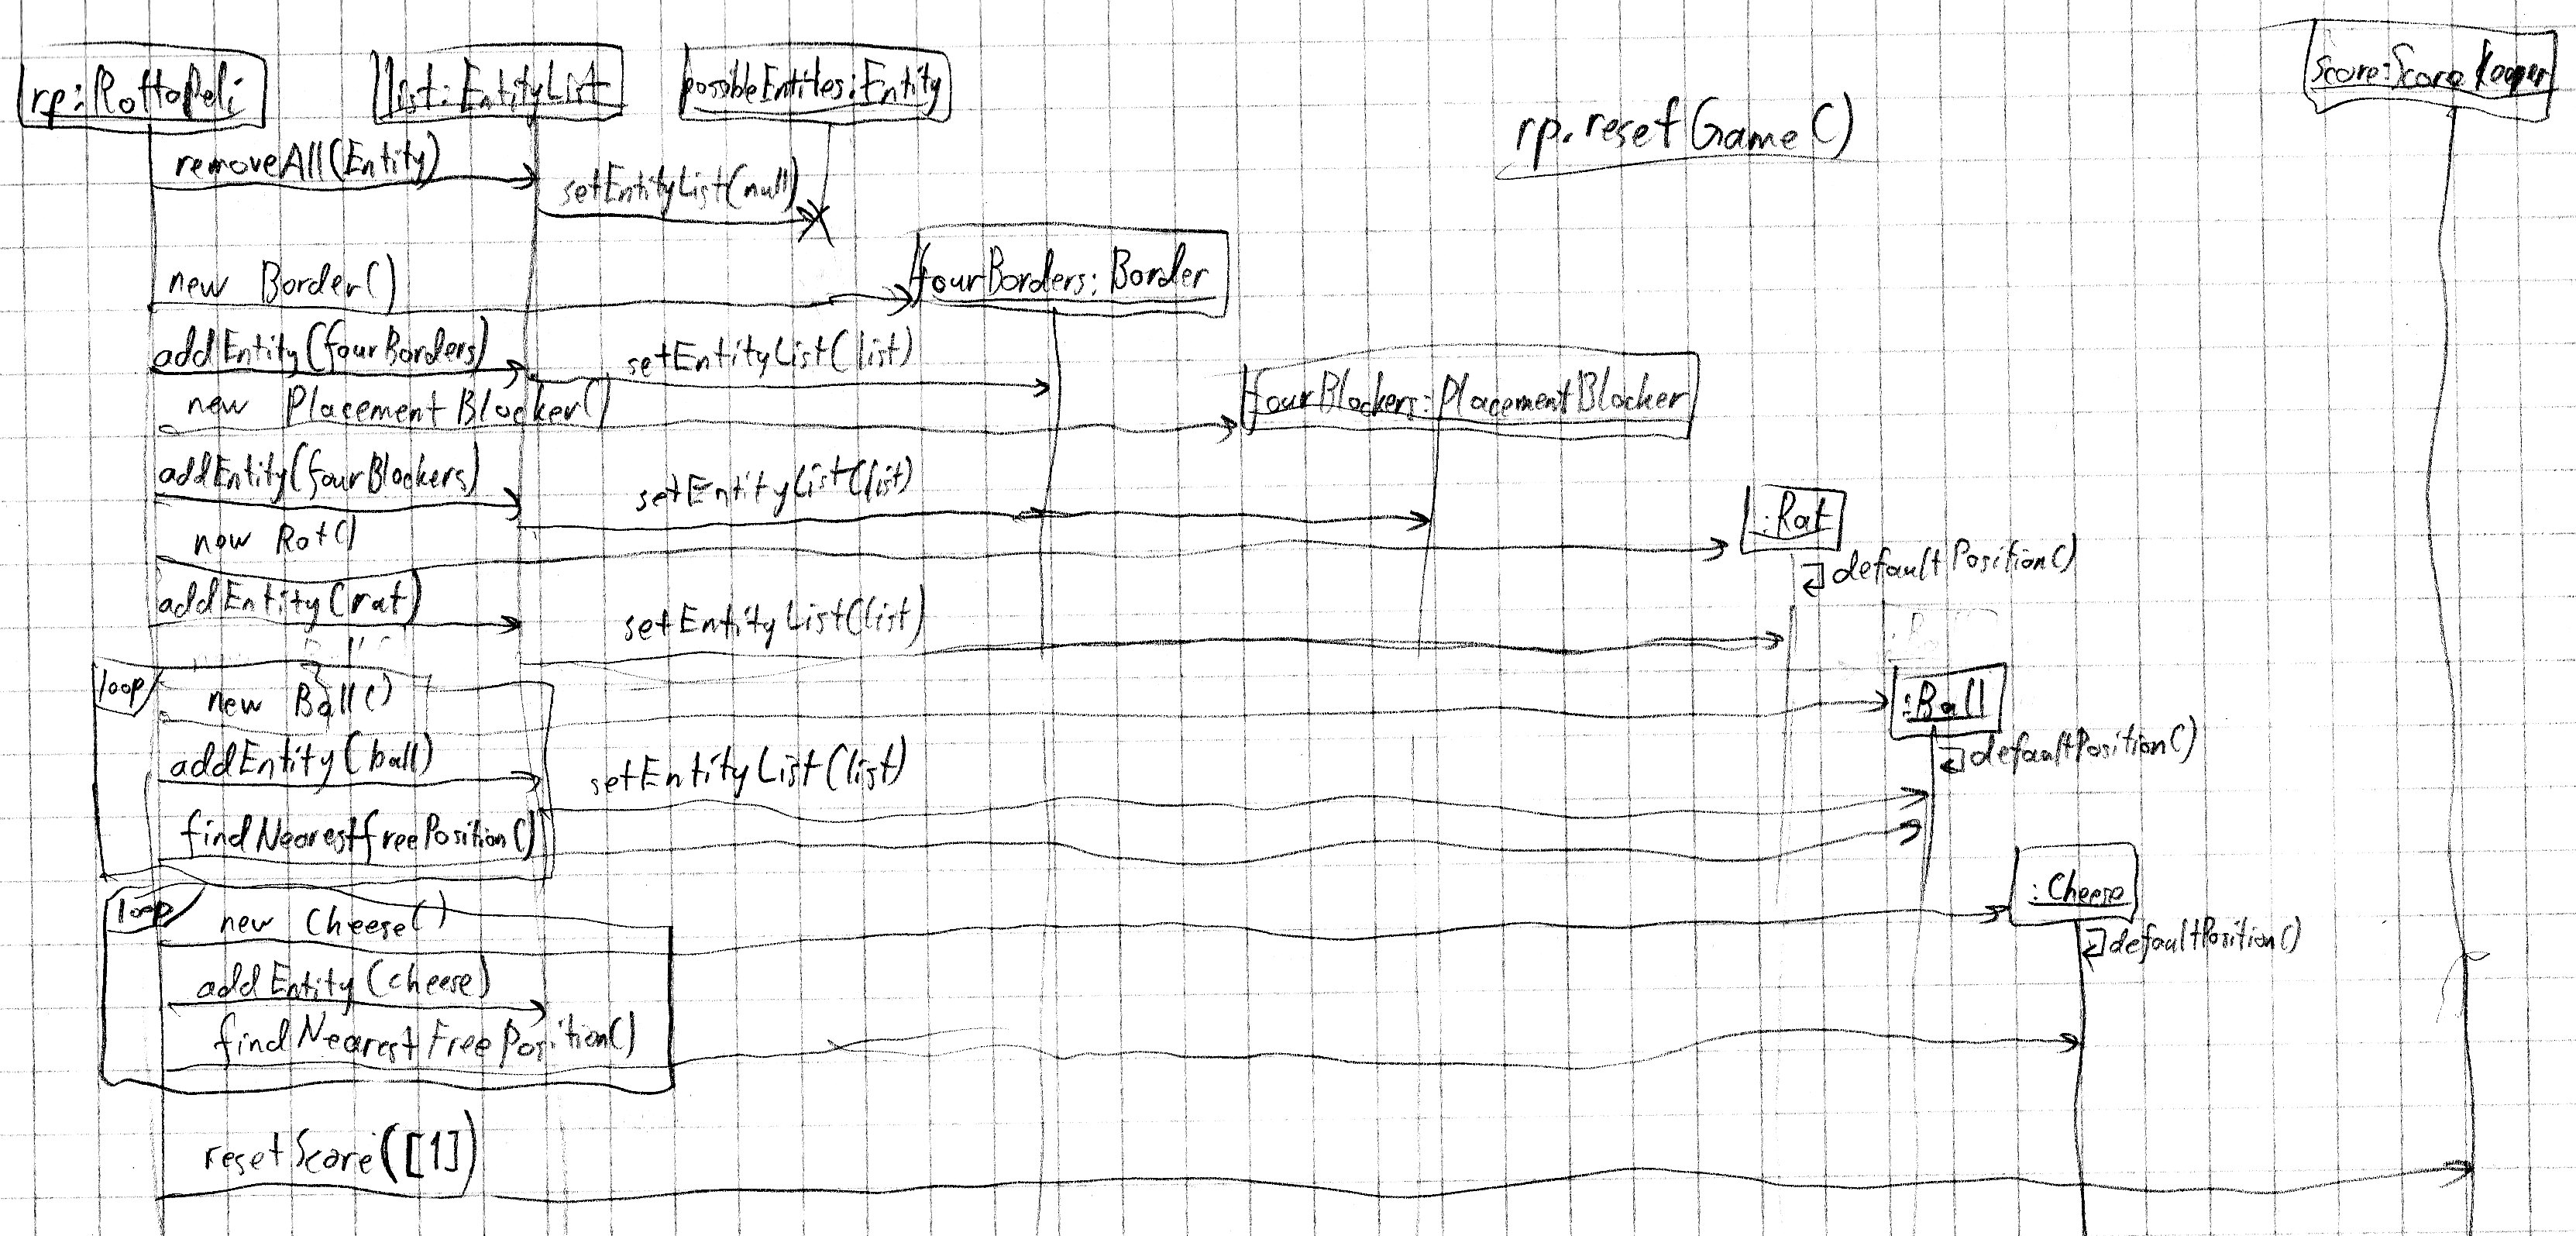 rp:RottaPeli
list:EntityList
possibleEntities:Entity
score:ScoreKeeper
rp.resetGame()
removeAll(Entity)
setEntityList(null)
new Border()
fourBorders:Border
addEntity(fourBorders)
setEntityList(list)
new PlacementBlocker()
fourBlockers:PlacementBlocker
addEntity(fourBlockers)
setEntityList(list)
new Rat()
:Rat
defaultPosition()
addEntity(rat)
setEntityList(list)
loop
new Ball()
:Ball
defaultPosition()
addEntity(ball)
setEntityList(list)
findNearestfreePosition()
loop
new Cheese()
:Cheese
defaultPosition()
addEntity(cheese)
findNearestFreePosition()
resetScore([1])